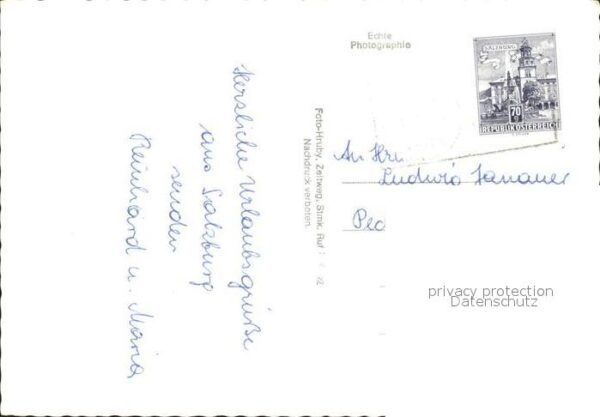 Herzliche Urlaubsgrüße
aus Salzburg
senden
Reinhard u. Maria
Echte
Photographie
Foto-Hruby, Zeltweg, Stmk, Ruf
Nachdruck verboten.
SALZBURG
70
REPUBLIK ÖSTERREICH
An Hrn
Ludwig
privacy protection
Datenschutz